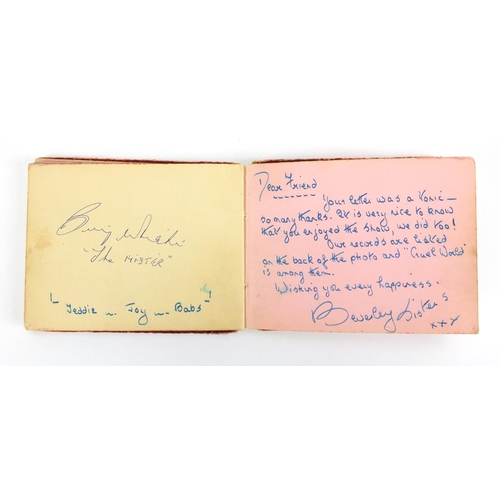 "The MISTER"
Teddie Joy Babs
Dear Friend
Your letter was a tonic –
so many thanks. It is very nice to know
that you enjoyed the show, we did too!
Our records are listed
on the back of the photo and "Cruel World"
is among them.
Wishing you every happiness.
Beverley Sisters
xxx